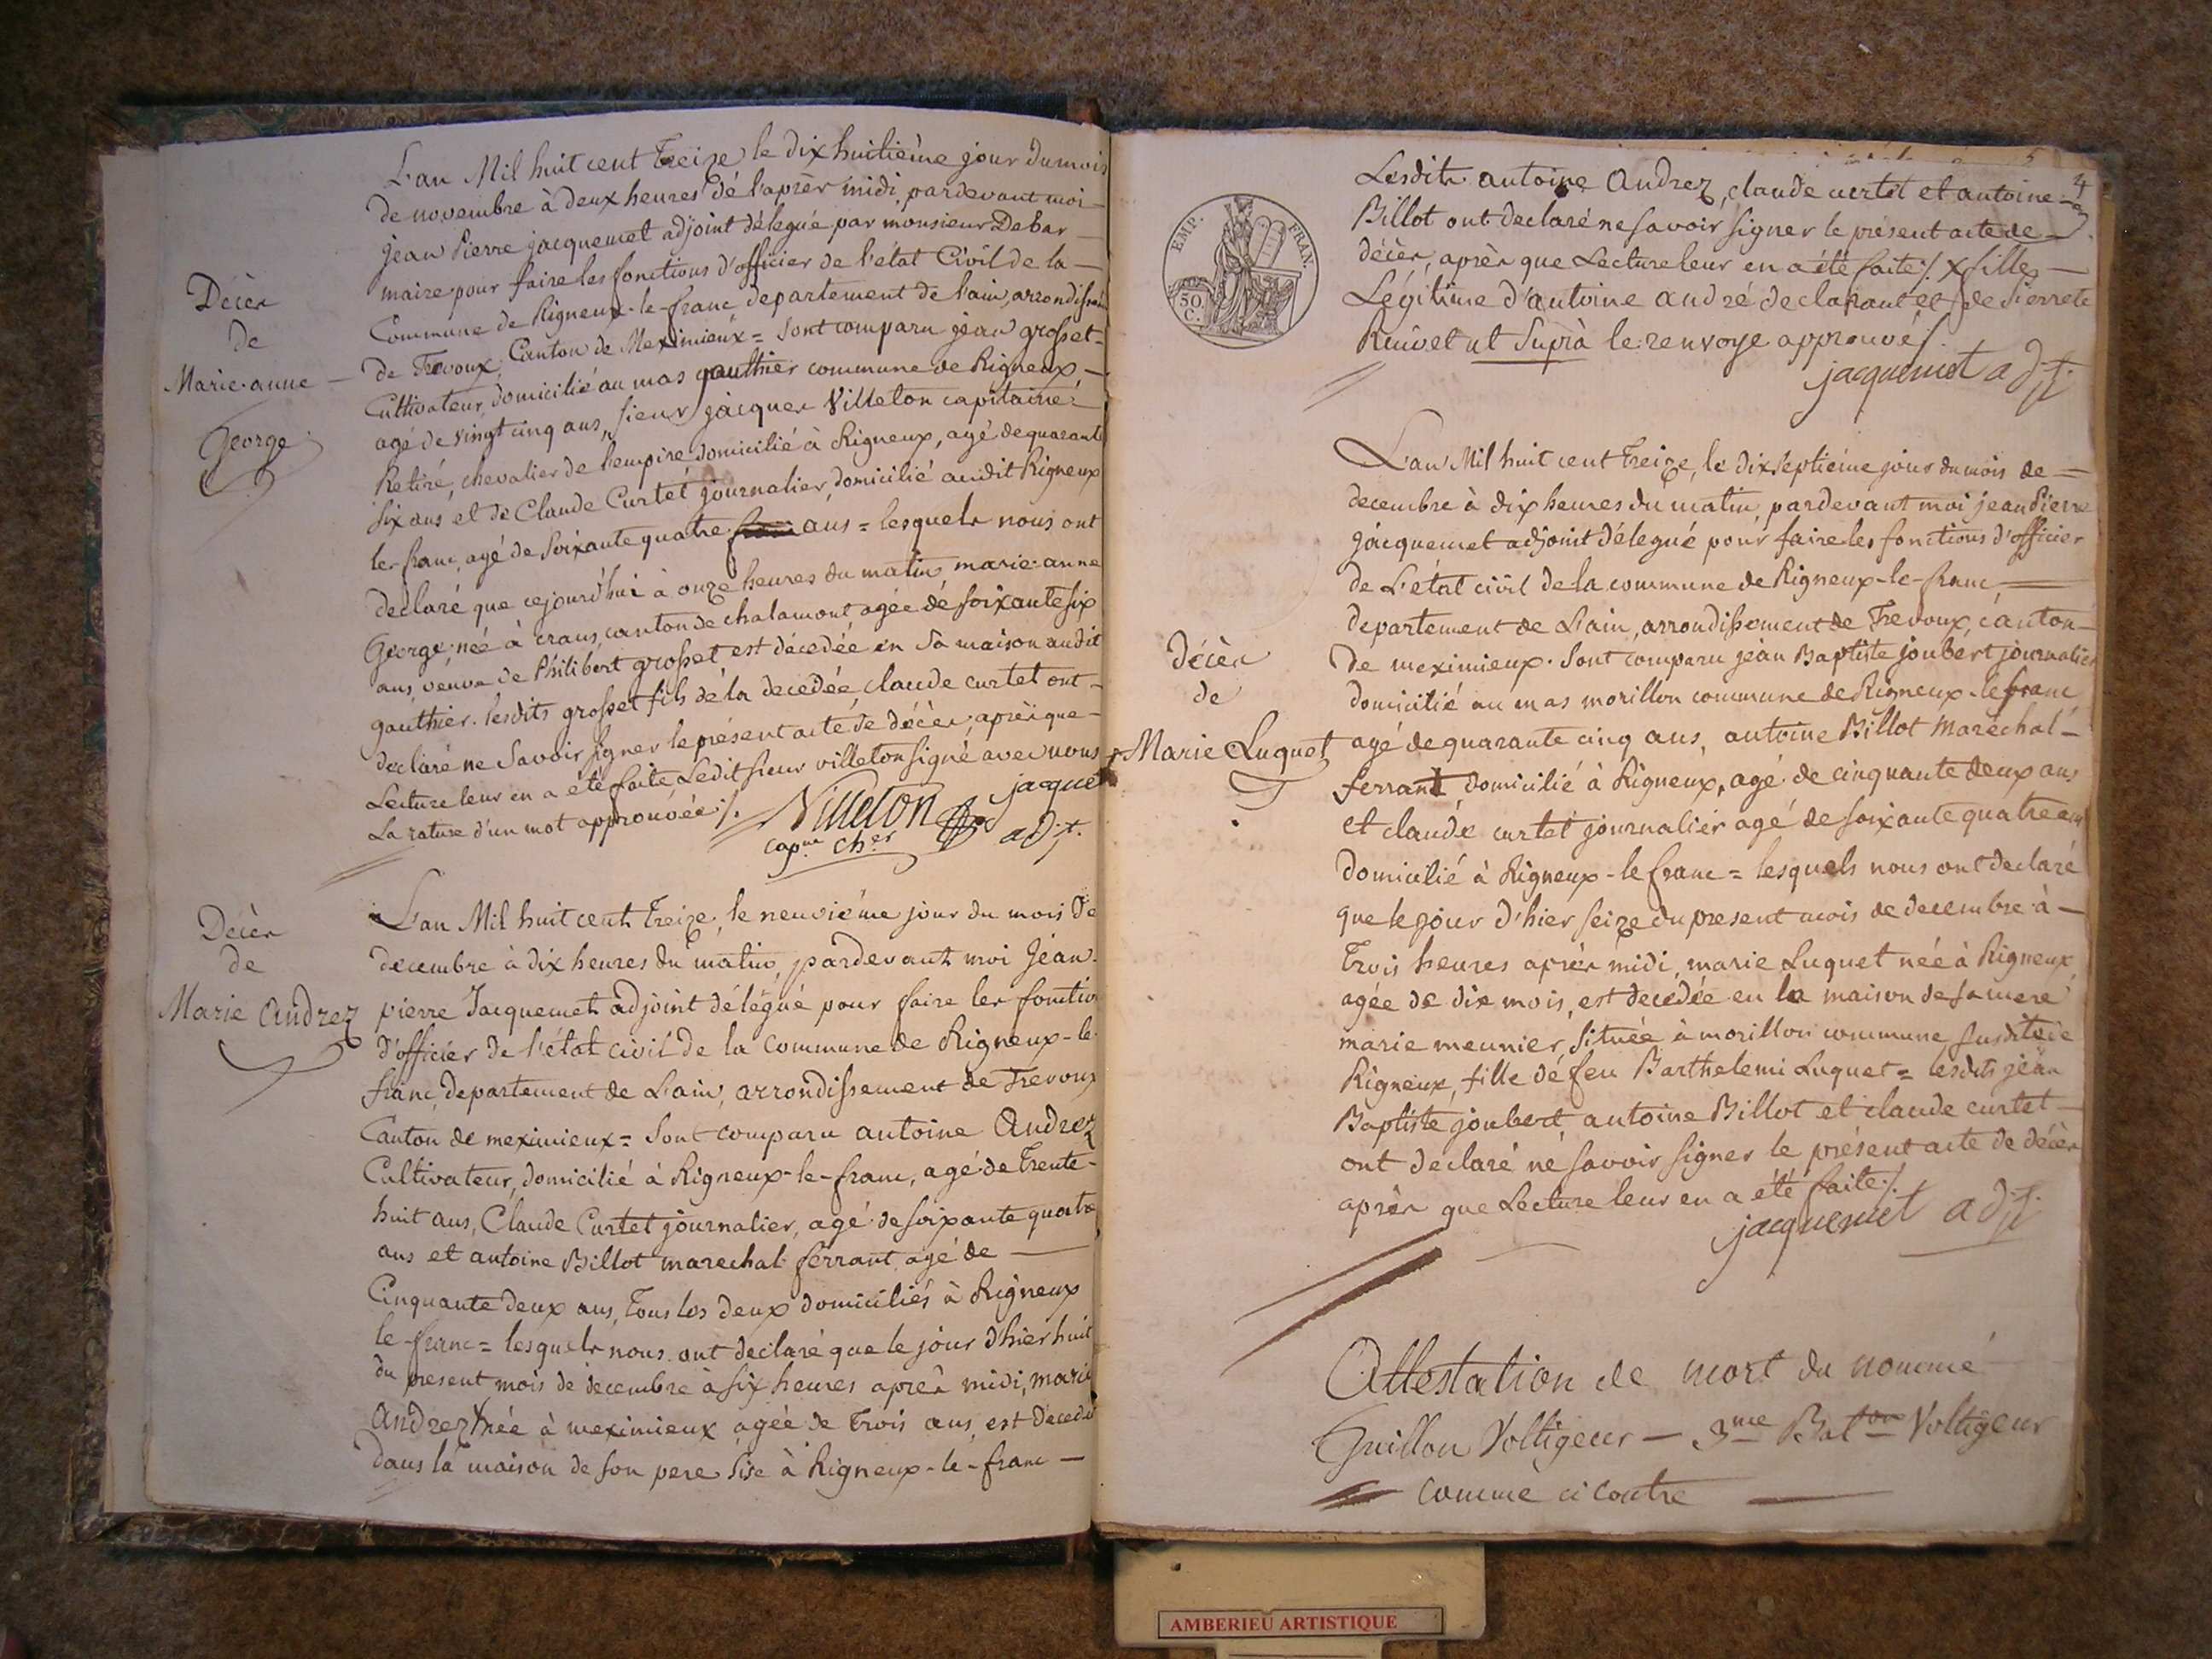 Décès
de
Marie-anne
George
L'an Mil huit cent Treize le dix huitième jour du mois
de novembre à deux heures de l'après midi, pardevant moi
jean Pierre jacquemet adjoint délegué par monsieur Debar
maire pour faire les fonctions d'officier de l'état Civil de la
Commune de Rigneux-le-franc departement de l'ain, arrondissem
de Trevoux, Canton de Meximieux = Sont comparu jean grosset
Cultivateur, domicilié au mas gauthier commune de Rigneux
agé de vingt cinq ans, sieur jacques Villeton capitaine
Retiré, chevalier de l'empire domicilié à Rigneux, agé de quarante
six ans et de Claude Curtet journalier, domicilié audit Rigneux
le franc, agé de soixante quatre ans = lesquels nous ont
declaré que cejourd'hui à onze heures du matin marie-anne
George née à crans, canton de chalamont, agée de soixante six
ans, veuve de Philibert grosset est décedée en sa maison audit
gauthier. lesdits grosset fils de la decedée, claude curtet ont
declaré ne Savoir signer le présent acte de décès, après que
Lecture leur en a été faite Ledit sieur villeton signé avec nous
La rature d'un mot approuvée /.
Villeton
capne cher
jacque
adjt.
Décès
de
Marie Andrez
L'an Mil huit cent Treize, le neuvième jour du mois de
decembre à dix heures du matin, pardevant moi Jean
pierre Jacquemet adjoint délégué pour faire les fonctio
d'officier de l'état civil de la Commune de Rigneux-le
franc, departement de L'ain, arrondissement de Trevoux
Canton de meximieux = Sont comparu antoine Andrez
Cultivateur, domicilié à Rigneux-le-franc, agé de Trente
huit ans, Claude Curtet journalier, agé de soixante quatre
ans et antoine Billot marechal ferrant agé de
Cinquante deux ans, Tous les deux domiciliés à Rigneux
le-franc = lesquels nous ont declaré que le jour d'hier huit
du present mois de decembre à six heures après midi, marie
Andrez X née à meximieux agée de Trois ans, est decedée
dans la maison de son pere sise à Rigneux-le-franc
4
EMP. FRAN.
50
C.
Lesdits antoine Andrez, claude curtet et antoine
Billot ont declaré ne savoir signer le présent acte de
décès, après que Lecture leur en a été faite /. X fille
Légitime d'antoine andré declarant et de Pierrete
Ruivet ut Suprà le renvoye approuvé /.
jacquemet adjt
Décès
de
Marie Luquet
L'an Mil huit cent Treize, le dix septième jour du mois de
decembre à dix heures du matin, pardevant moi jean Pierre
jacquemet adjoint délegué pour faire les fonctions d'officier
de L'état civil de la commune de Rigneux-le-franc,
departement de L'ain, arrondissement de Trevoux, canton
de meximieux. Sont comparu jean Baptiste joubert journalier
domicilié au mas morillon commune de Rigneux-le franc
agé de quarante cinq ans, antoine Billot maréchal
ferrant domicilié à Rigneux, agé de cinquante deux ans
et claude curtet journalier agé de soixante quatre ans
domicilié à Rigneux-le franc = lesquels nous ont declaré
que le jour d'hier seize du present mois de decembre à
Trois heures après midi, marie Luquet née à Rigneux
agée de dix mois, est decedée en la maison de sa mere
marie meunier, située à morillon commune susdite de
Rigneux, fille de feu Barthelemi Luquet = lesdits jean
Baptiste joubert antoine Billot et claude curtet
ont declaré ne savoir signer le présent acte de décès
après que Lecture leur en a été faite /.
jacquemet adjt
Attestation de mort du nommé
Guillon Voltigeur — 3me Baton Voltigeur
comme ci contre
AMBERIEU ARTISTIQUE